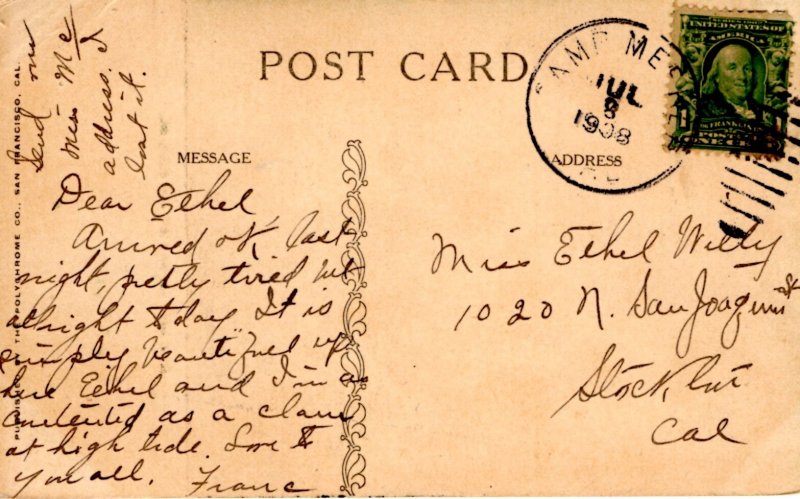 POST CARD
MESSAGE
ADDRESS
CAMP ME
JUL
8
1908
CAL
SERIES 1902
UNITED STATES OF
AMERICA
FRANKLIN
Send me
Miss Mc
address. I
lost it.
Dear Ethel
Arrived OK last
night, pretty tired but
allright today. It is
simply beautiful up
here Ethel and I'm as
contented as a clam
at high tide. Love to
you all. Franc
Miss Ethel Willy
1020 N. San Joaquin St
Stockton
Cal
PUBLISHED BY THE POLYCHROME CO., SAN FRANCISCO, CAL.